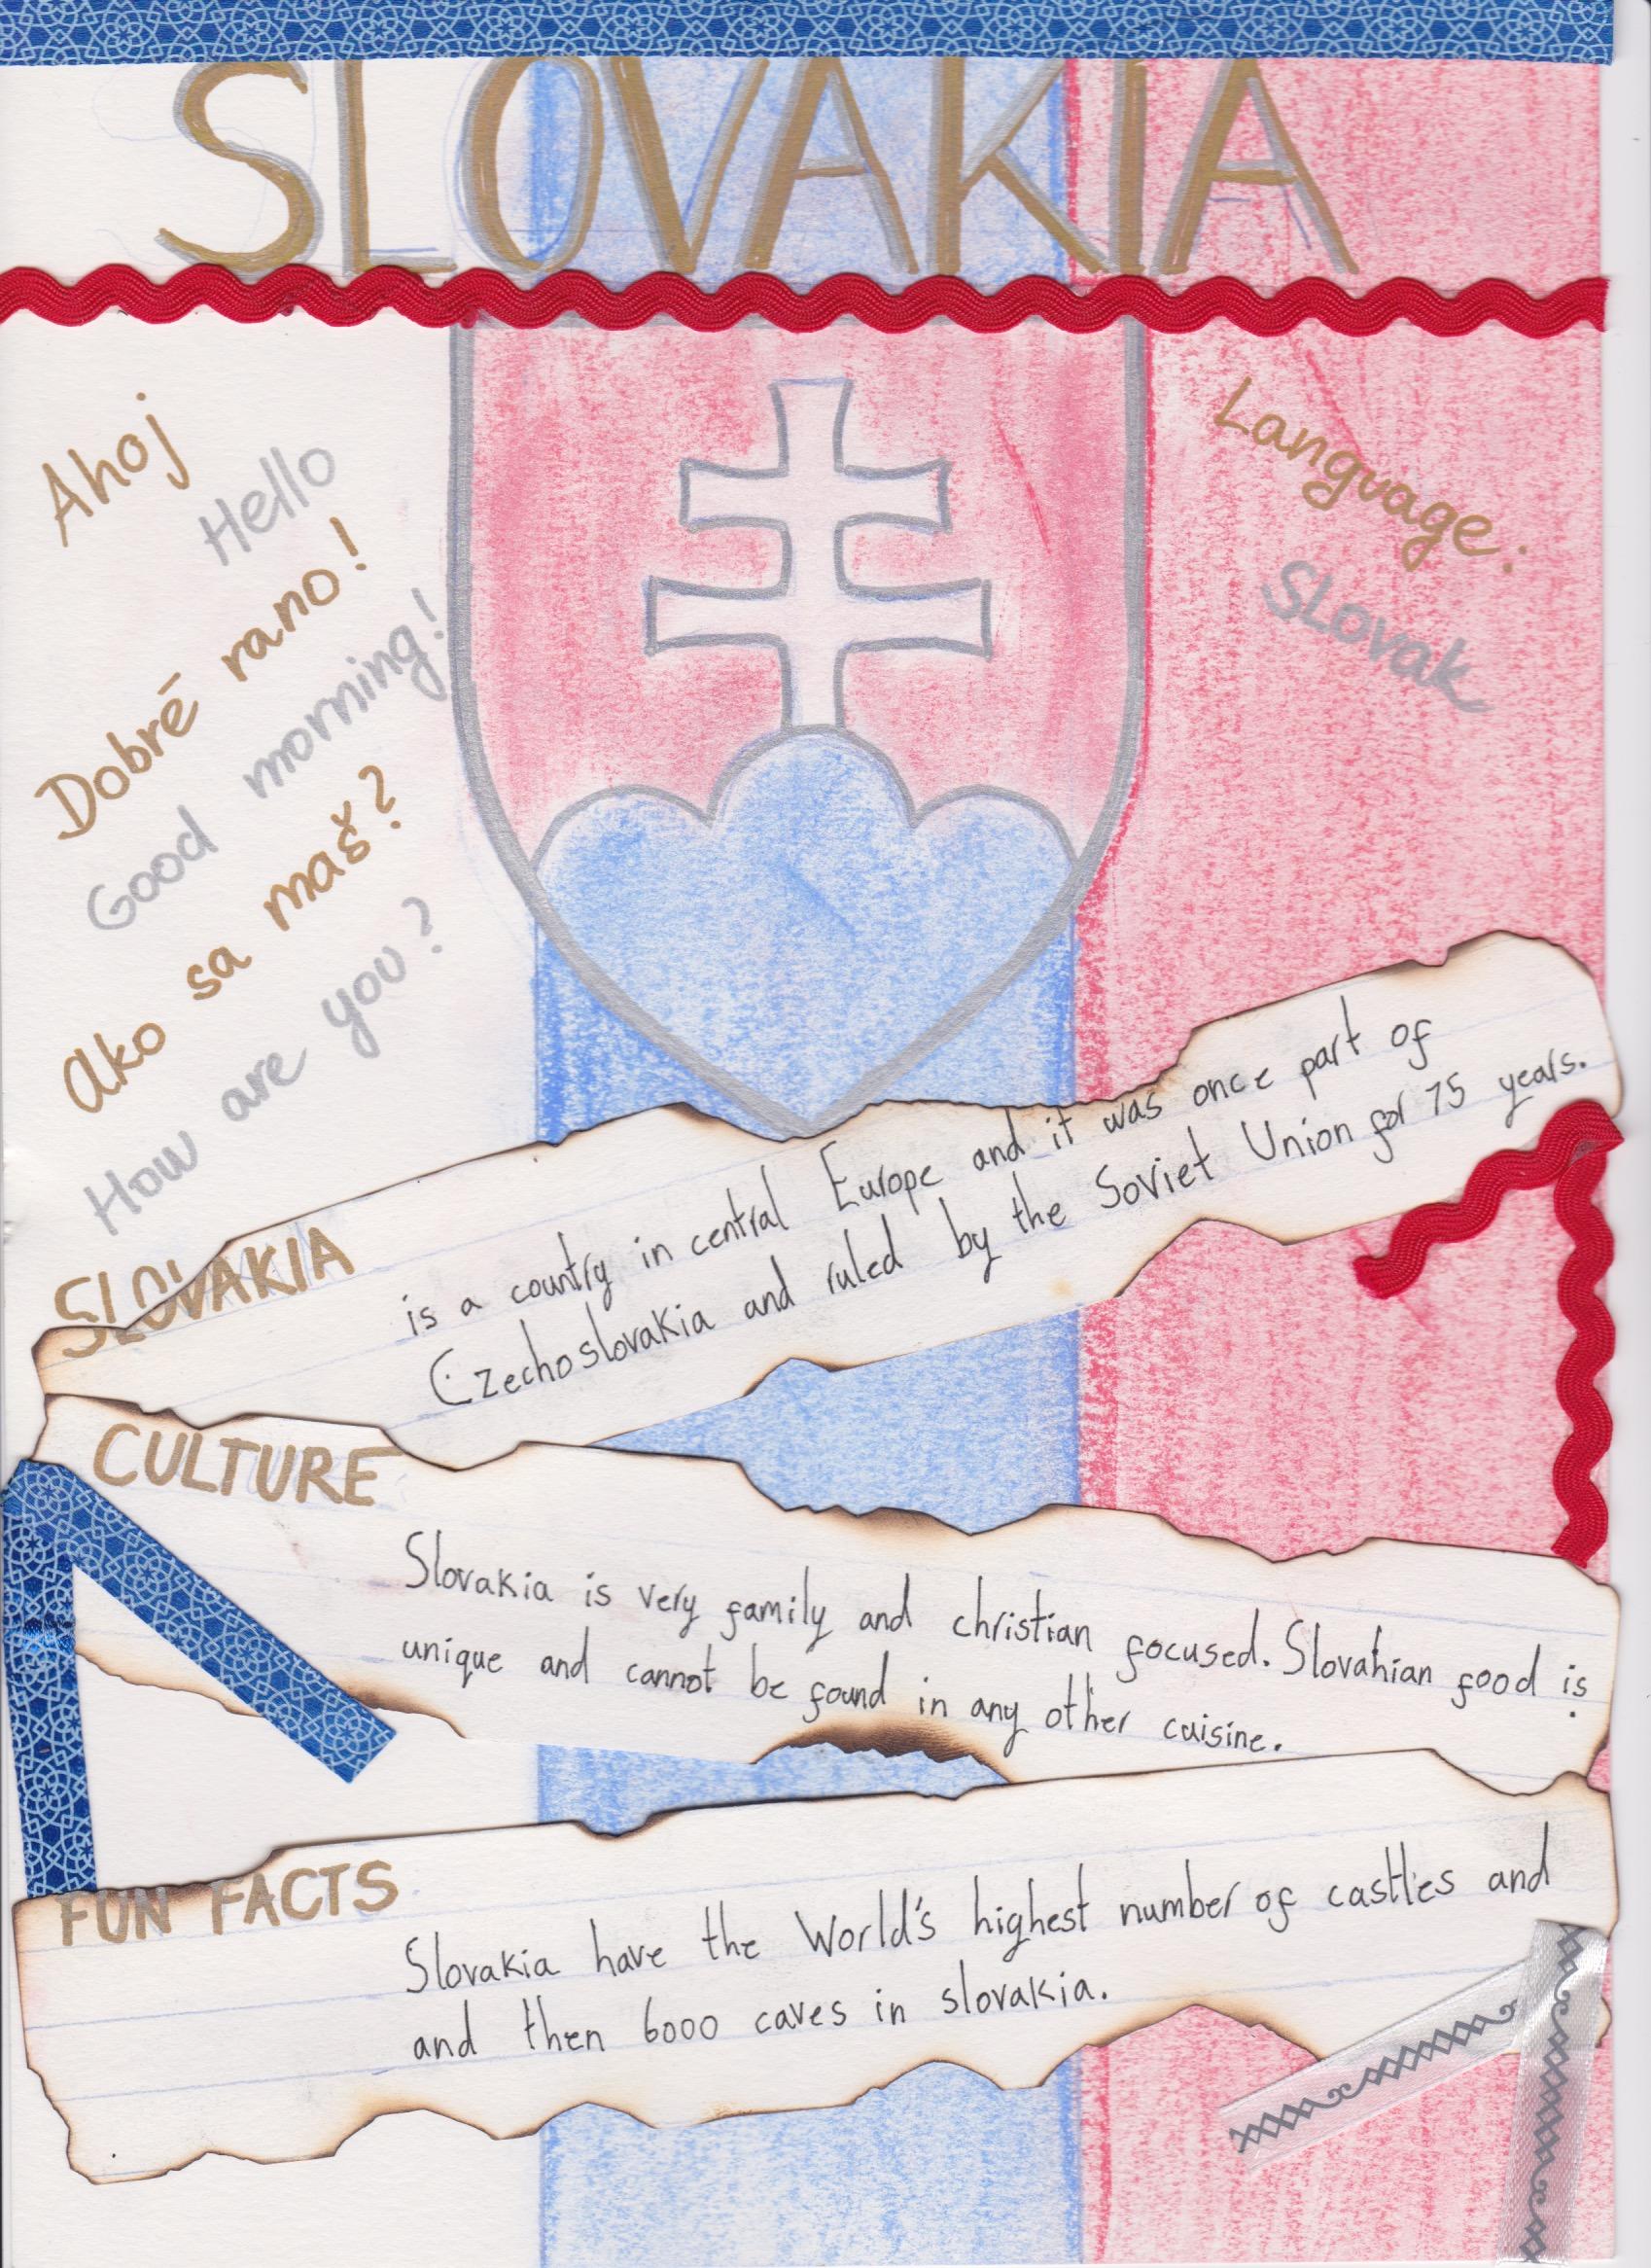 SLOVAKIA
Ahoj
Hello
Dobré rano!
Good morning!
Ako sa maš?
How are you?
Language:
Slovak
SLOVAKIA
is a country in central Europe and it was once part of
Czechoslovakia and ruled by the Soviet Union for 75 years.
CULTURE
Slovakia is very family and christian focused. Slovakian food is
unique and cannot be found in any other cuisine.
FUN FACTS
Slovakia have the World's highest number of castles and
and then 6000 caves in slovakia.